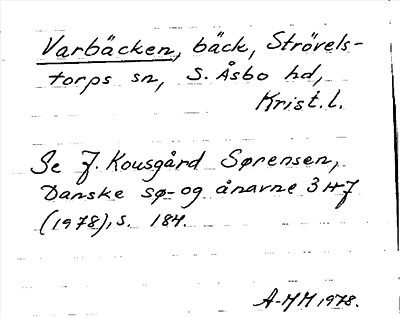 Varbäcken, bäck, Strövels-
torps sn, S. Åsbo hd,
Krist. l.
Se J. Kousgård Sørensen,
Danske sø- og ånavne 3 H-J
(1978), s. 184.
A-MM 1978.